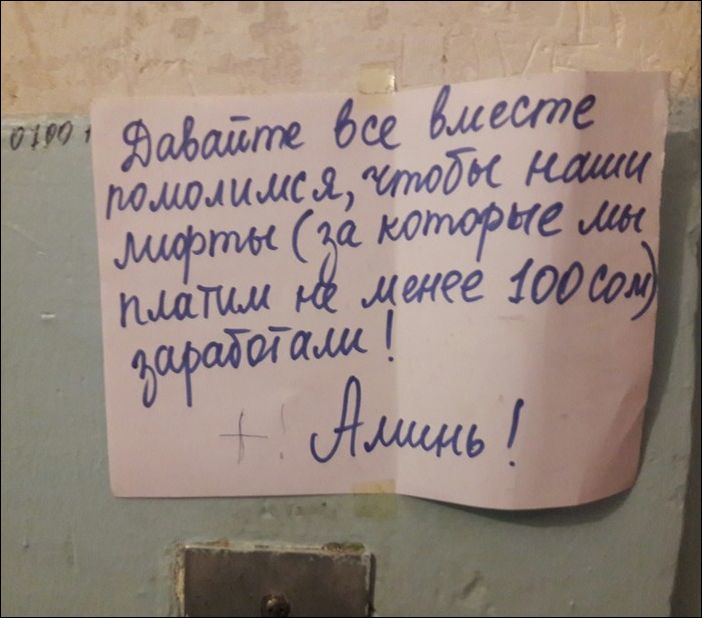 Давайте все вместе
помолимся, чтобы наши
лифты (за которые мы
платим не менее 100 сом)
заработали!
+! Аминь!